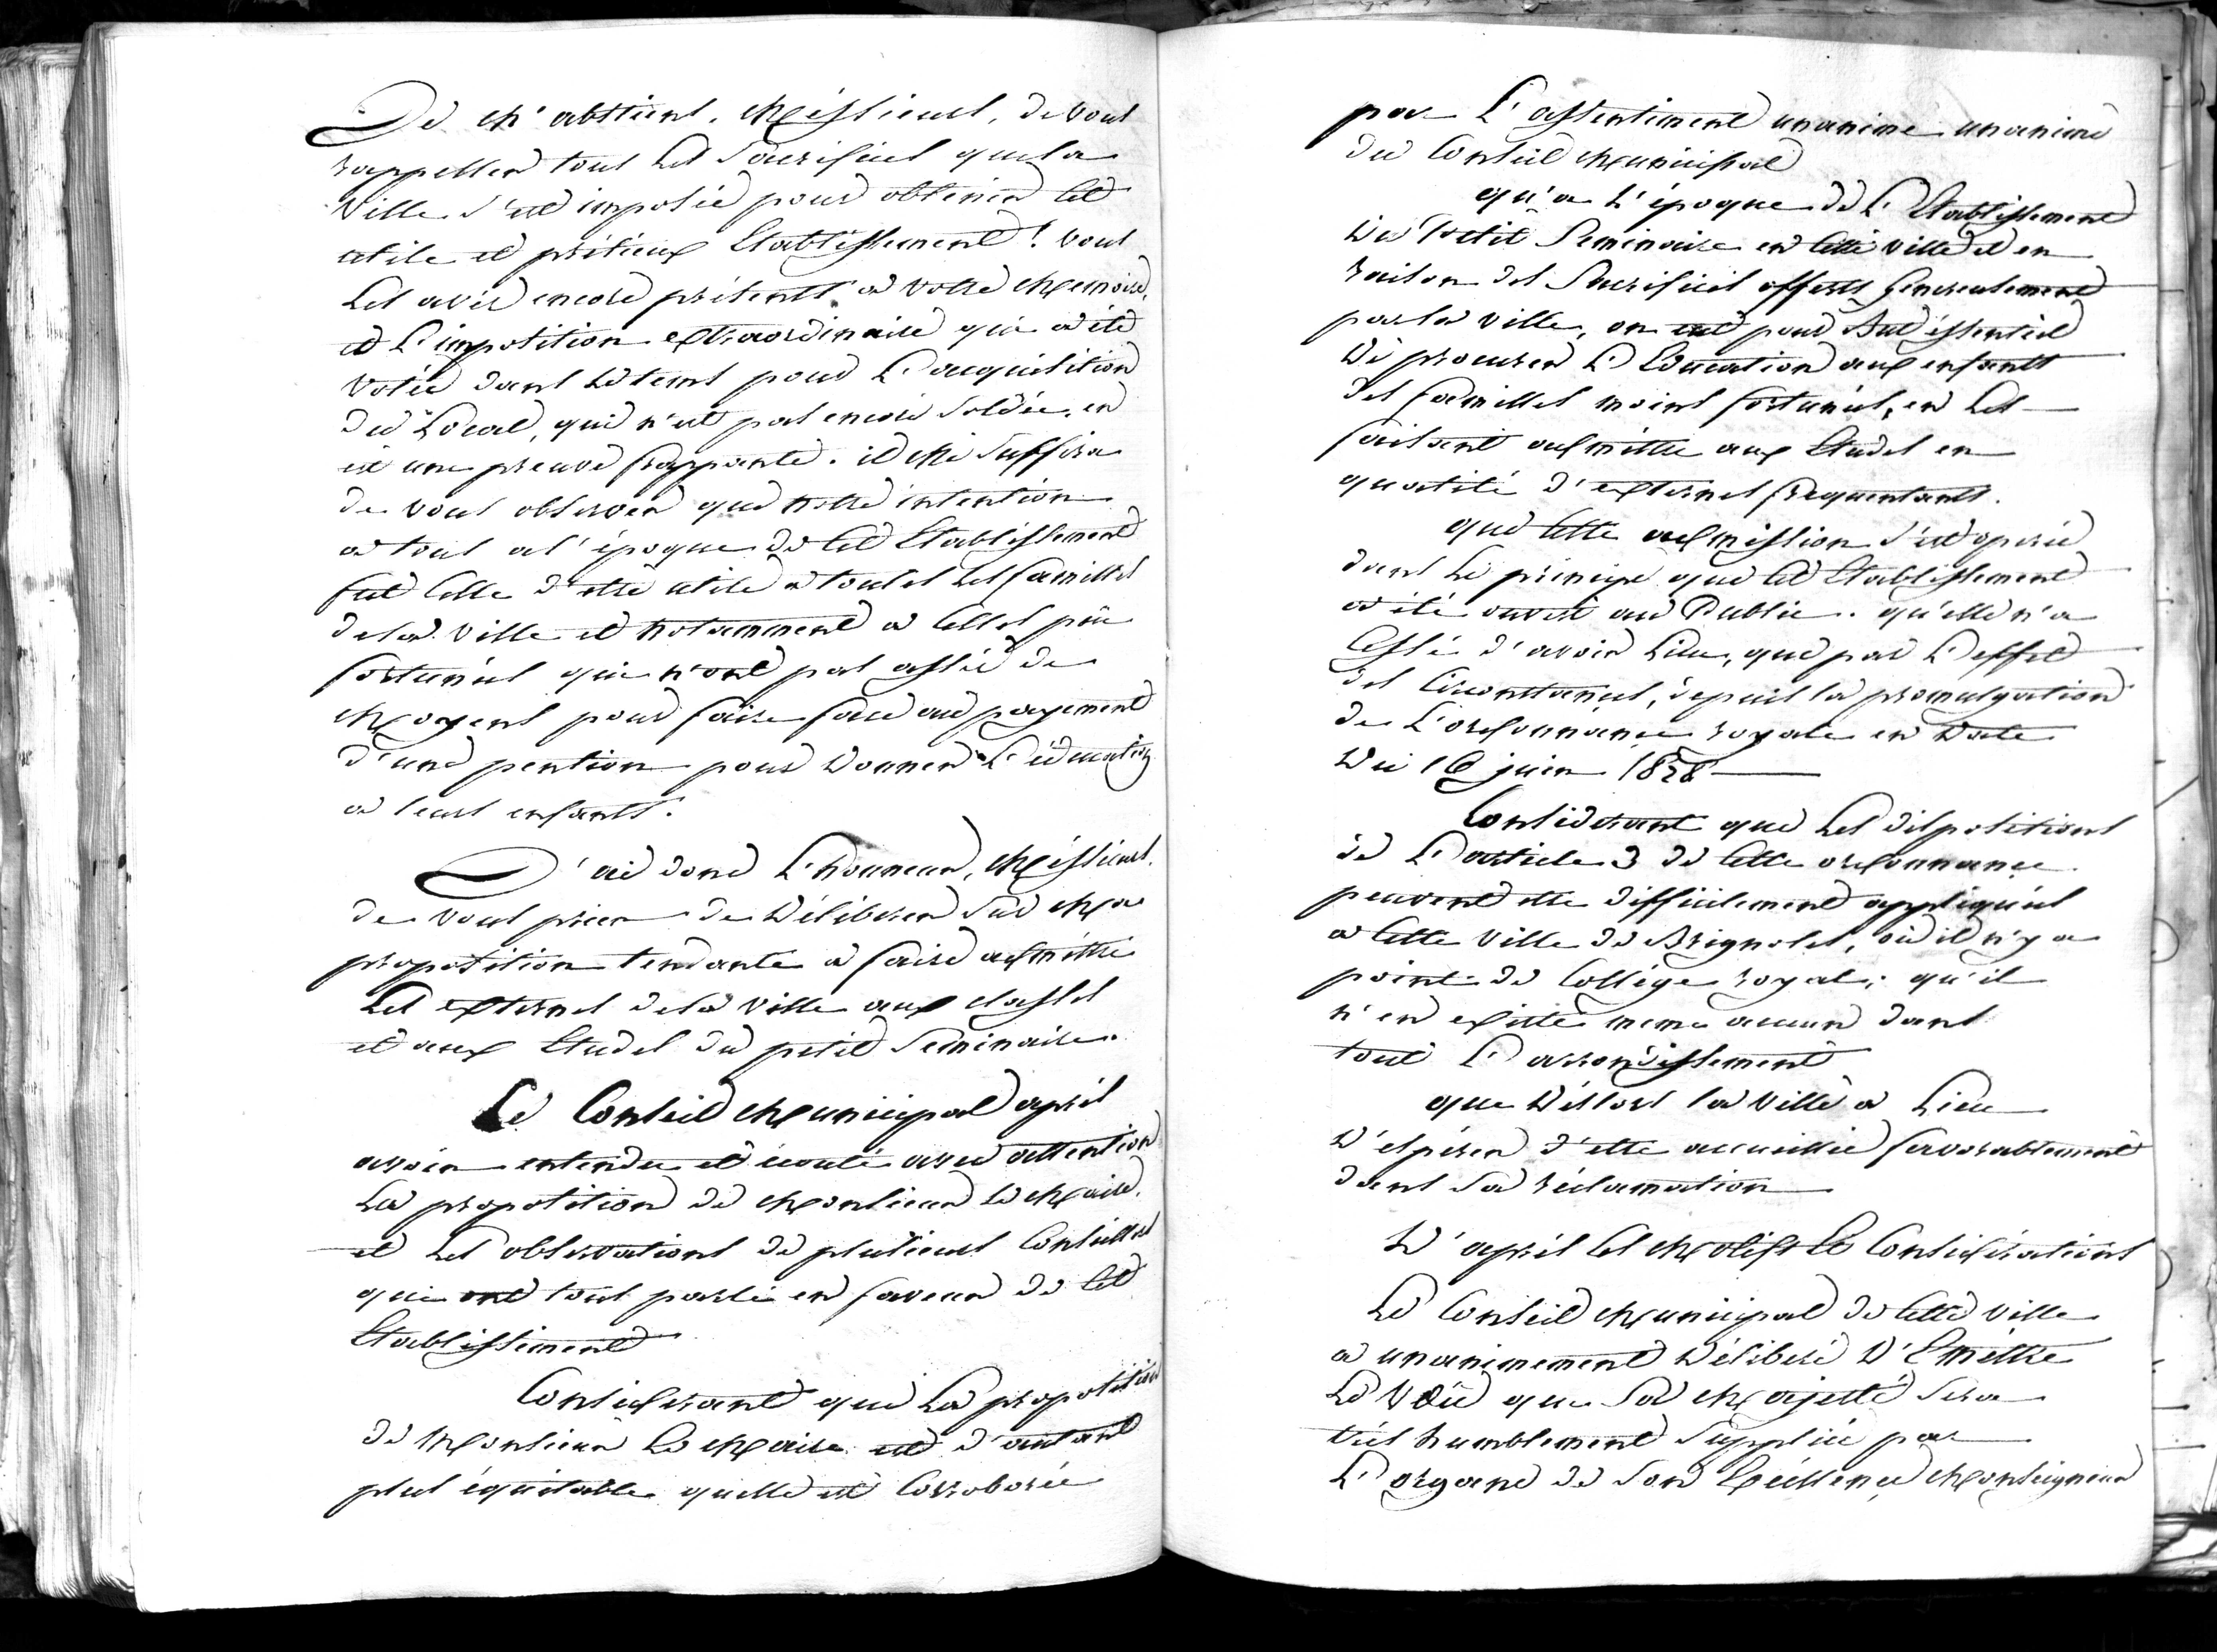 Je m'abstiens, Messieurs, de vous
rappeller tous les Sacrifices que la
Ville s'est imposée pour obtenir cet
utile et prétieux Etablissement ! vous
les avés encore présents a votre Memoire,
et L'imposition extraordinaire qui a été
Votée dans letems pour L'acquisition
du Local, qui n'est pas encore Soldée, en
est une preuve frappante. il me Suffira
de vous observer que notre intention
a tous a l'époque de cet Etablissement
fut celle d'etre utile a toutes les familles
dela Ville et notamment a celles peu
fortunées qui n'ont pas assés de
Moyens pour faire face au payement
d'une pention pour donner L'éducation
a leurs enfants.
J'ai donc L'honneur, Messieurs,
de vous prier de Délibérer Sur Ma
proposition tendante a faire admettre
Les externes dela Ville aux classes
et aux Etudes du petit Séminaire.
Le Conseil Municipal aprés
avoir entendu et écouté avec attention
La proposition de Monsieur le Maire,
et Les observations de plusieurs Conseillers
qui ont tous parlé en faveur de cet
Etablissement
Considerant que La proposition
de Monsieur Le Maire est d'autant
plus équitable quelle est Corroborée
par L'assentiment unanime unanime
du Conseil Municipal
qu'a L'époque de L'Etablissement
du Petit Seminaire en cette ville et en
raison des Sacrifices offerts genereusement
par la ville, on eut pour But éssentiel
de procurer L'Education aux enfants
des familles moins fortunées, en Les
faisant admettre aux Etudes en
qualité d'externes frequentants.
que cette admission s'est opérée
dans Le principe que cet Etablissement
a été ouvert au Public. qu'elle n'a
Cessé d'avoir Lieu, que par L'effet
des Circonstances, depuis la promulgation
de L'ordonnance royale en Date
du 16 juin 1828
Considerant que Les dispositions
de L'article 3 de cette ordonnance
peuvent etre difficilement appliquées
a cette Ville de Brignoles, où il n'y a
point de Collége royal; qu'il
n'en existe meme aucun dans
tout L'arrondissement
que Déslors la Ville a Lieu
D'espérer d'etre accueillie favorablement
dans Sa réclamation
D'aprés ces Motifs et Considérations
Le Conseil Municipal de cette Ville
a unanimement Délibéré D'Emettre
Le Vœu que Sa Majesté Sera
trés humblement Suppliée par
L'organe de Son Excéllence Monseigneur